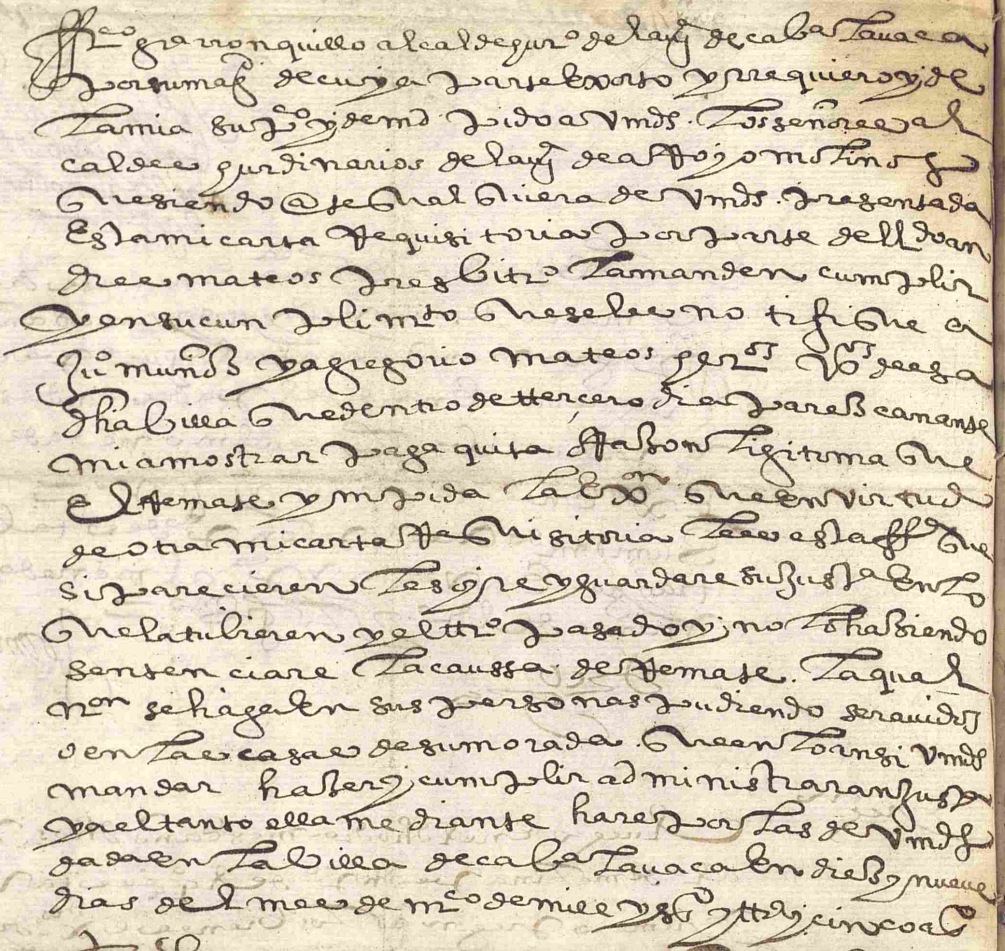 ffco garronquillo alcalde huro de la va de casas la vaca
por su magd de cuya parte exorto y rrequiero y de
la mia supco y de md pido a vmds. los señores al
caldes hurdinarios de la va de arroyo molinos
que siendo ante qual quiera de vmds. presentada
esta mi carta Requisitoria por parte del ldo an
dres mateos presbitro la manden cumplir
y en su cunplimto que se les notifique a
Juo muñoz y a gregorio mateos her os vos de esa
dha villa que dentro de ttercero dia parezcan ante
mi a mostrar paga quita o Razon ligitima que
el Remate ynpida la exon que en virtud
de otra mi carta Requisitoria les esta ffa que
si parecieren les oyre y guardare su justa en lo
que la tubieren y el ttro pasado y no lo haziendo
sentenciare la caussa de Remate. la qual
non se haga en sus personas pudiendo ser avidos
o en las casas de su morada. que en lo ansi vmds
mandar hazer y cumplir administraran justa
y al tanto ella mediante hare por las de vmds
dada en la villa de casas la vaca en diez y nueve
dias del mes de mco de mill y sso y ttra y cinco as